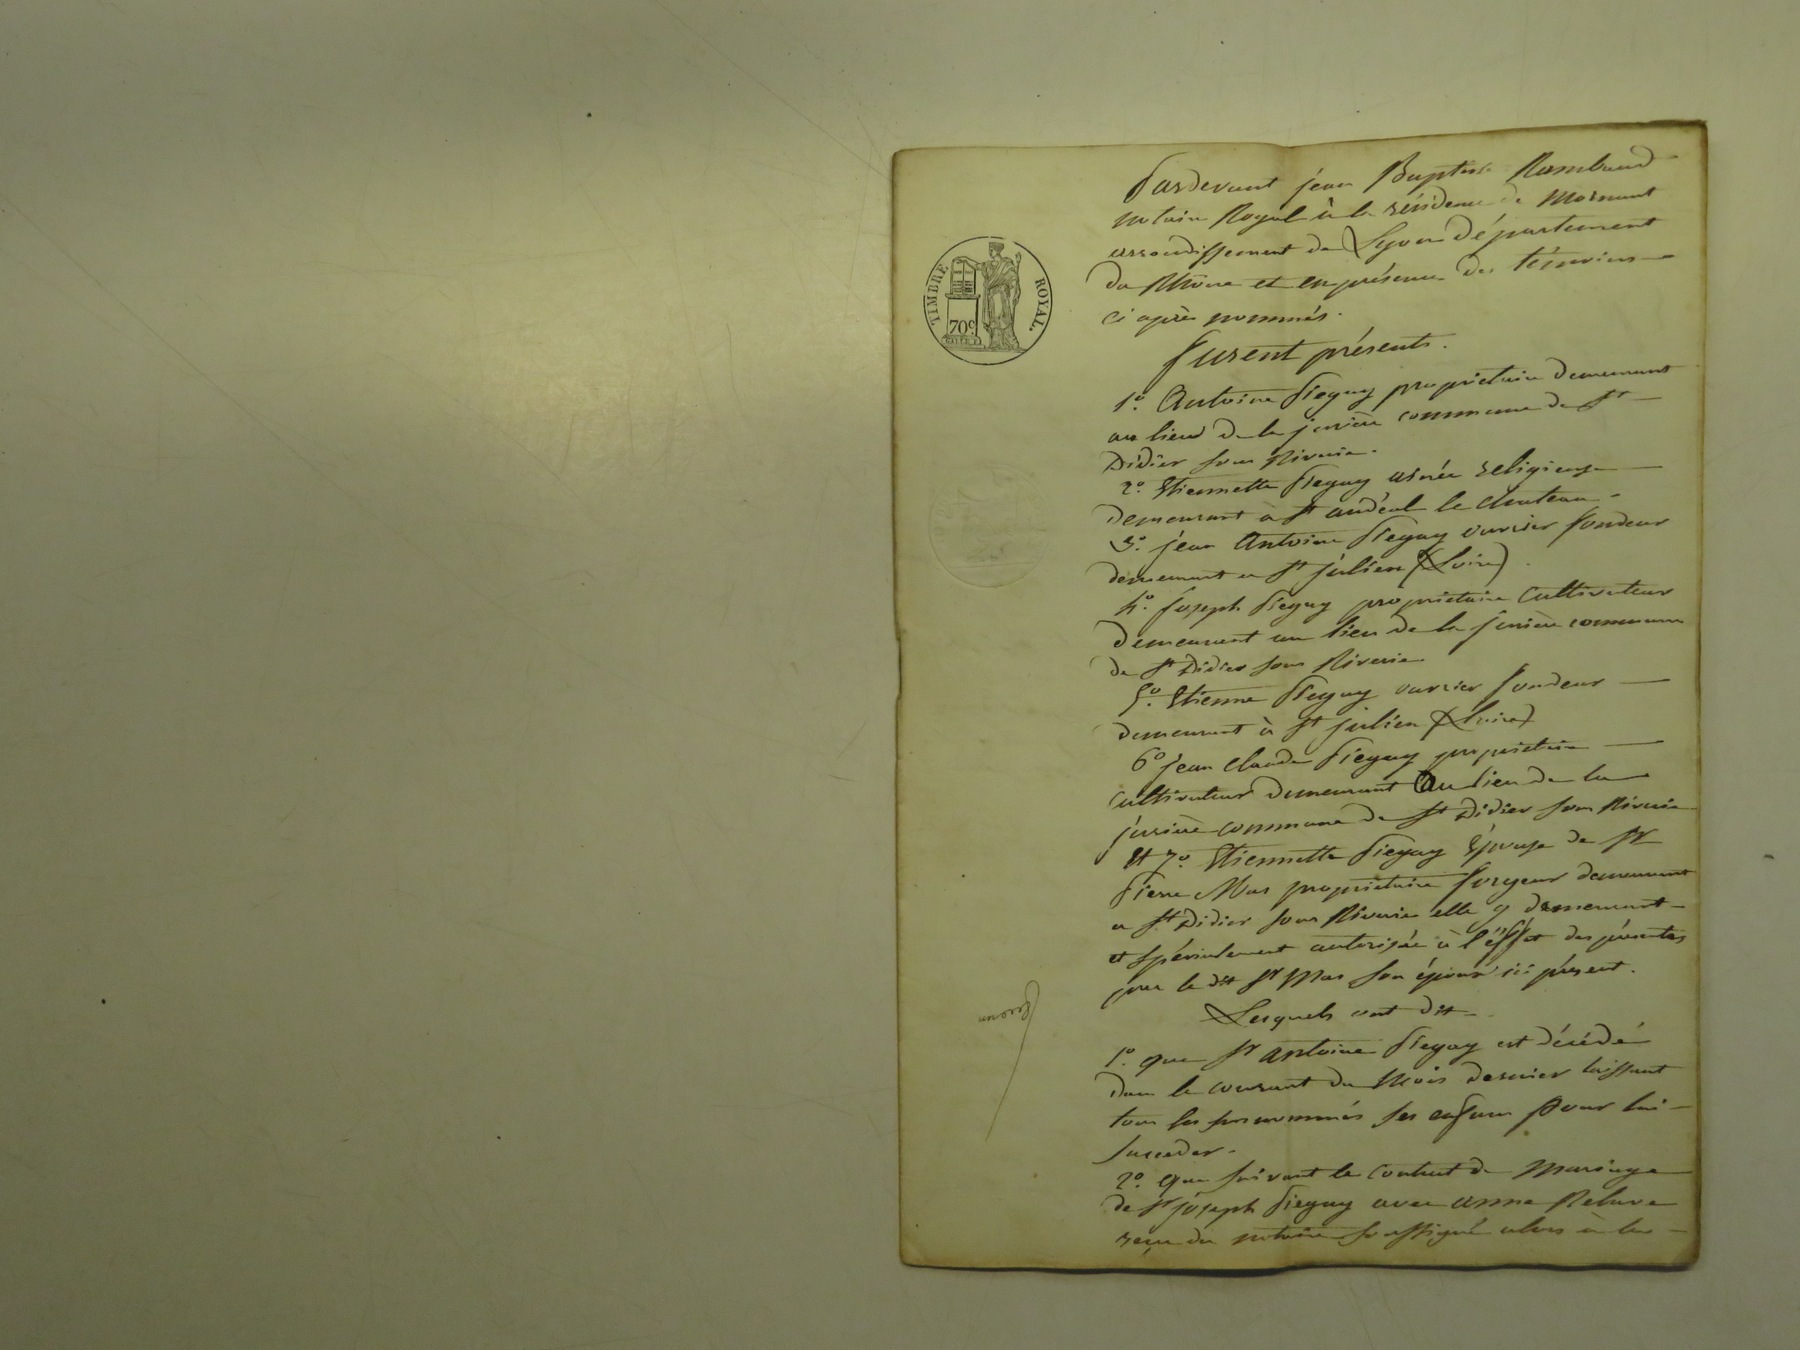 TIMBRE ROYAL.
70c
Pardevant jean Baptiste Rambaud
notaire Royal à la résidence de Mornant
arrondissement de Lyon département
du Rhône et en présence des témoins
ci après nommés.
furent présents.
1o. Antoine Piegay propriétaire demeurant
au lieu de la jurière commune de St
Didier sous Riverie.
2o. Etiennette Piegay ainée religieuse
demeurant à St andéol le chateau.
3o. jean Antoine Piegay ouvrier fondeur
demeurant a St julien (Loire).
4o. joseph Piegay propriétaire cultivateur
demeurant au lieu de la jurière commune
de St Didier sous Riverie
5o. Etienne Piegay ouvrier fondeur
demeurant à St julien (Loire)
6o jean claude Piegay propriétaire
cultivateur demeurant Au lieu de la
jurière commune de St Didier sous Riverie
Et 7o. Etiennette Piegay Epouse de Sr
Pierre Mas propriétaire forgeur demeurant
a St Didier sous Riverie elle y demeurant
et spécialement autorisée à l'éffet des présentes
par le dit Sr Mas son époux ici présent.
Lesquels ont dit
1o. que Sr antoine Piegay est décédé
dans le courant du mois dernier laissant
tous les susnommés ses enfans pour lui
succeder.
2o. que suivant le contrat de Mariage
de Sr joseph Piegay avec anne Relave
reçu du notaire soussigné alors à la